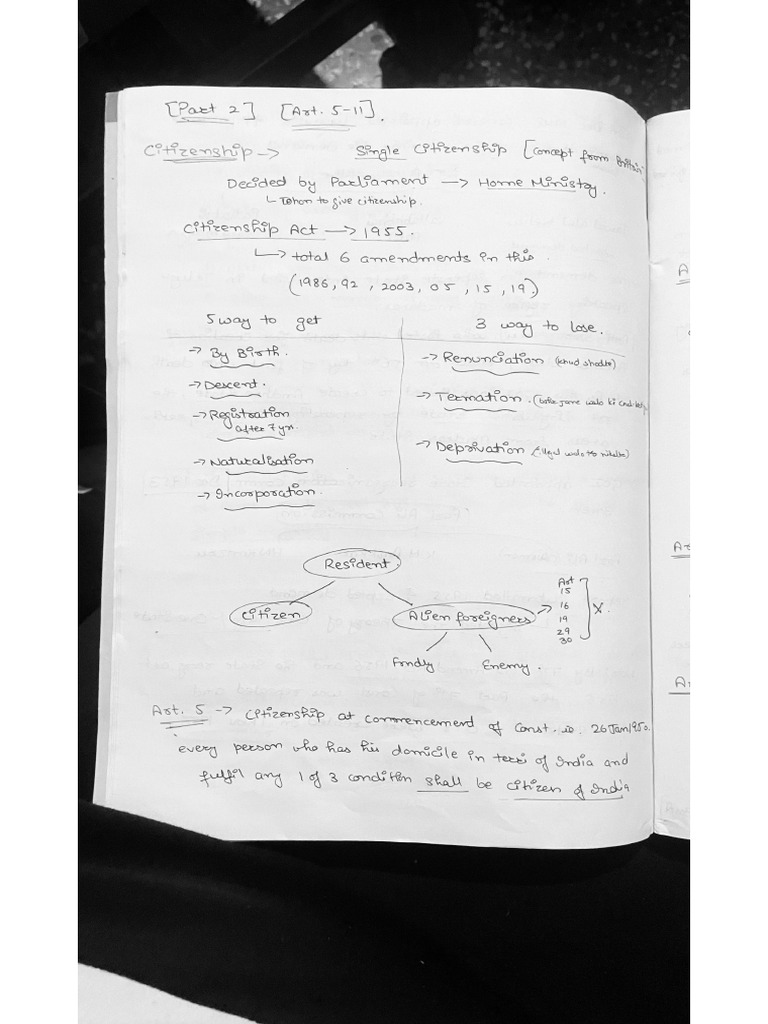 [Part 2] [Art. 5-11].
Citizenship → Single citizenship [concept from Britain]
Decided by Parliament → Home Ministry.
to give citizenship.
Citizenship Act → 1955.
↳ total 6 amendments in this.
(1986, 92, 2003, 05, 15, 19.)
5 way to get
3 way to lose.
→ By Birth.
→ Descent.
→ Registration
after 7 yr.
→ Naturalisation
→ Incorporation.
→ Renunciation (khud
→ Termation. (
→ Deprivation (
Resident.
Citizen
Alien foreigners →
Art
15
16
19
29
30
X.
Frndly Enemy.
Art. 5 → Citizenship at commencement of Const. ie: 26 Jan 1950.
every person who has his domicile in terri of India and
fulfil any 1 of 3 condition shall be citizen of India
A
Ar
A